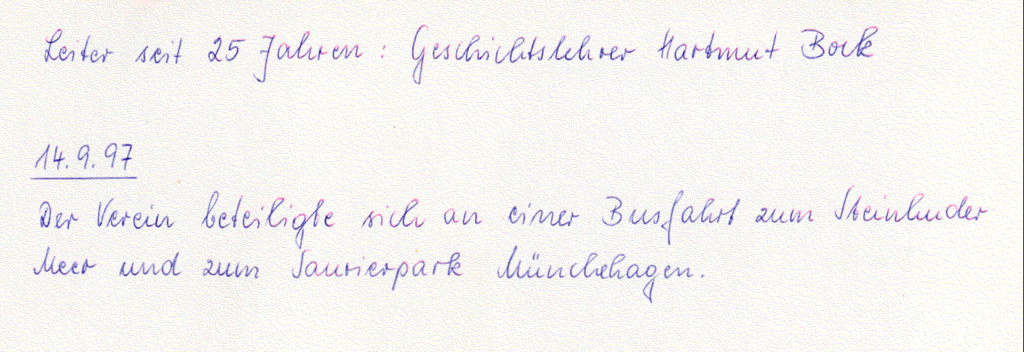 Leiter seit 25 Jahren: Geschichtslehrer Hartmut Bock
14.9.97
Der Verein beteiligte sich an einer Busfahrt zum Steinhuder
Meer und zum Saurierpark Münchehagen.